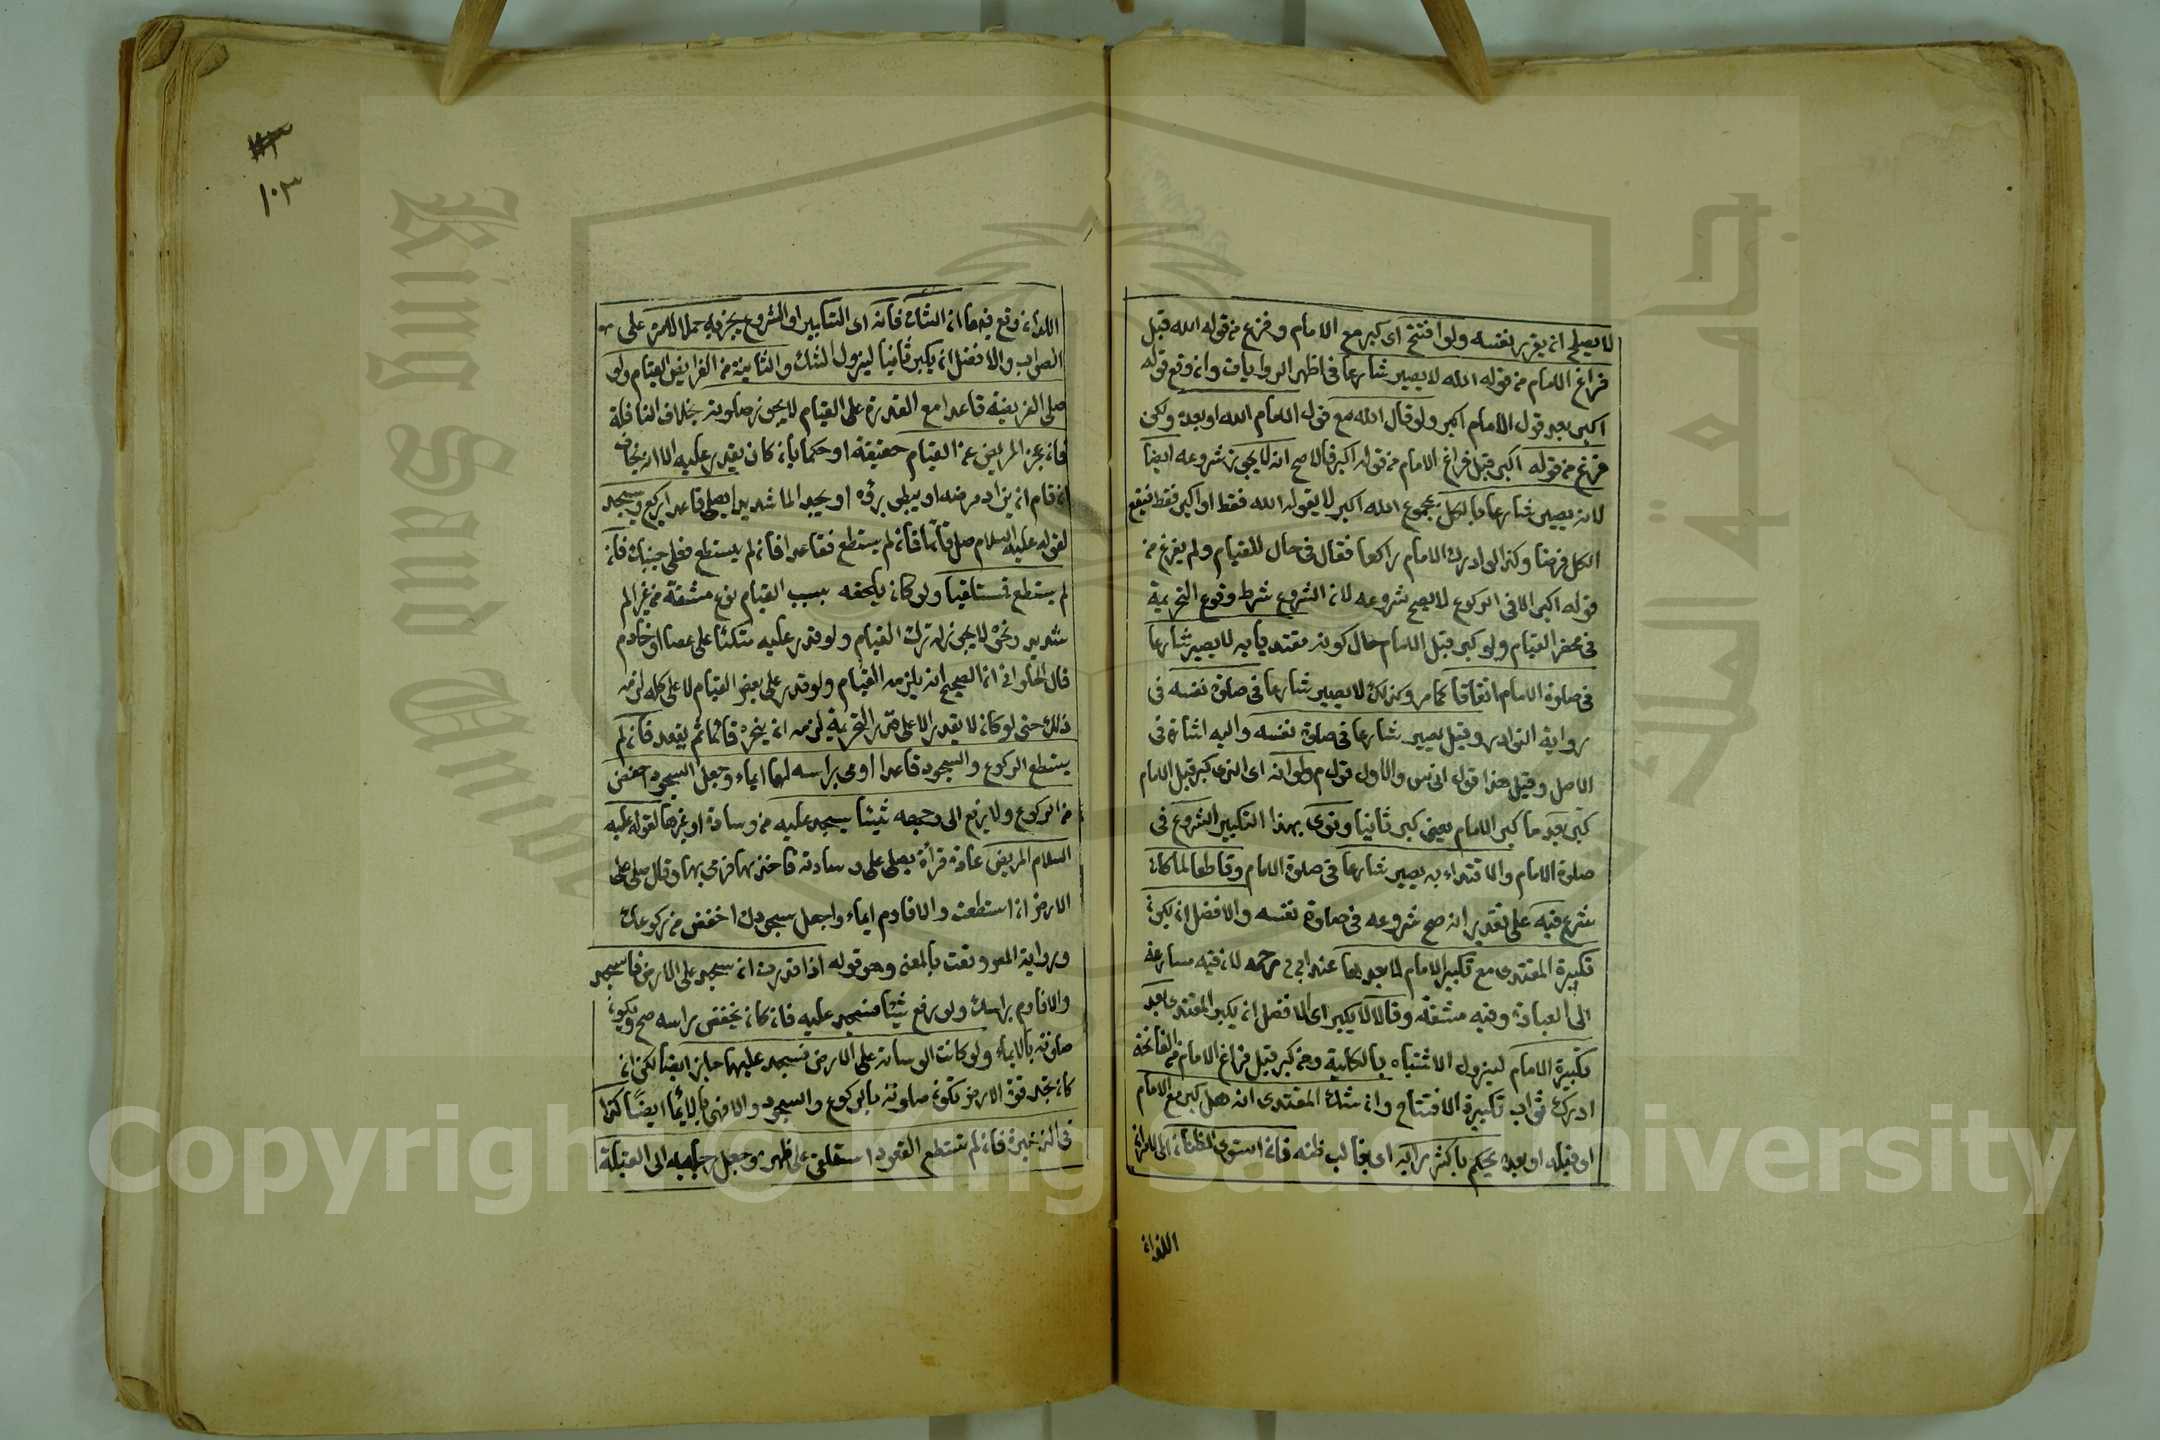 لا يصلح ان يغرر نفسه ولو افتتح اى كبر مع الامام و فرغ من قوله الله قبل
فراغ الامام من قوله الله لا يصير شارعا فى اظهر الروايات وان وقع قوله
اكبر بعد قول الامام اكبر ولو قال الله مع قول الامام الله او بعده ولكن
فرغ من قوله اكبر قبل فراغ الامام من قوله اكبر فالاصح انه لا يجوز شروعه ايضا
لانه يصير شارعا بالكل بمجموع الله اكبر لا بقوله الله فقط او اكبر فقط فيقع
الكل فرضا وكذا لو ادرك الامام راكعا فقال فى حال القيام ولم يفرغ من
قوله اكبر الا فى الركوع لا يصح شروعه لان الشروع شرط وقوع التحريمة
فى محض القيام ولو كبر قبل الامام حال كونه مقتديا به لا يصير شارعا
فى صلوة الامام اتفاقا كما مر وكذلك لا يصير شارعا فى صلوة نفسه فى
رواية النوادر وقيل يصير شارعا فى صلوة نفسه واليه اشارة فى
الاصل وقيل هذا قول ابى س والاول قول م ولو انه اى الذى كبر قبل الامام
كبر بعد ما كبر الامام يعنى كبر ثانيا ونوى بهذا التكبير الشروع فى
صلوة الامام والاقتداء به يصير شارعا فى صلوة الامام وقاطعا لما كان
شرع فيه على تقدير انه صح شروعه فى صلوة نفسه والافضل ان يكون
تكبيرة المقتدى مع تكبير الامام لا بعدها عند ابى ح رحمه لان فيه مسارعة
الى العبادة وفيه مشقة وقالا لا يكبر اى الافضل ان يكبر المقتدى بعد
تكبيرة الامام ليزول الاشتباه بالكلية ومن كبر قبل فراغ الامام من الفاتحة
ادرك ثواب تكبيرة الافتتاح وان شك المقتدى انه هل كبر مع الامام
او قبله او بعده يحكم باكثر رايه اى بغالب ظنه فان استوى الظنان اى
اللذان
اللذان وقع فيهما الشك فانه اى التكبير او الشروع يجزيه حملا لامره على
الصواب والافضل ان يكبر ثانيا ليزول الشك والثانية من الفرايض القيام ولو
صلى الفريضة قاعدا مع القدرة على القيام لا يجوز صلوته بخلاف النافلة
فان عجز المريض عن القيام حقيقة او حكما بان كان يقدر عليه الا انه يخاف
ان قام ان يزاد مرضه او يبطى برؤه او يجد الما شديدا يصلى قاعدا يركع ويسجد
لقوله عليه السلام صل قائما فان لم يستطع فقاعدا فان لم يستطع فعلى جنبك فان
لم يستطع فمستلقيا ولو كان يلحقه بسبب القيام نوع مشقة من غير الم
شديد ونحوه لا يجوز له ترك القيام ولو قدر عليه متكئا على عصا او خادم
قال الحلوانى ان الصحيح انه يلزمه القيام ولو قدر على بعض القيام لا على كله لزمه
ذلك حتى لو كان لا يقدر الا على قدر التحريمة لزمه ان يتحرم قائما ثم يقعد فان لم
يستطع الركوع والسجود قاعدا اومى براسه لهما ايماء وجعل السجود اخفض
من الركوع ولا يرفع الى وجهه شيئا يسجد عليه من وسادة او غيرها لقوله عليه
السلام المريض عاده فرأه يصلى على وسادته فاخذها فرمى بها وقال صلى على
الارض ان استطعت والا فاوم ايماء واجعل سجودك اخفض من ركوعك
ورواية المص وقعت بالمعنى وهو قوله اذا قدرت ان تسجد على الارض فاسجد
والا فاوم براسك ولو رفع شيئا فسجد عليه فان كان يخفض براسه صح ويكون
صلوته بالايماء ولو كانت الوسادة على الارض فسجد عليها جاز ايضا لكن ان
كان يجد قوة الارض تكون صلوته بالركوع والسجود والا فهى بالايماء ايضا كذا
فى الذخيرة فان لم تستطع القعود استلقى على ظهره وجعل رجليه الى القبلة
١٠٣
King Saud University
جامعة الملك سعود
Copyright © King Saud University